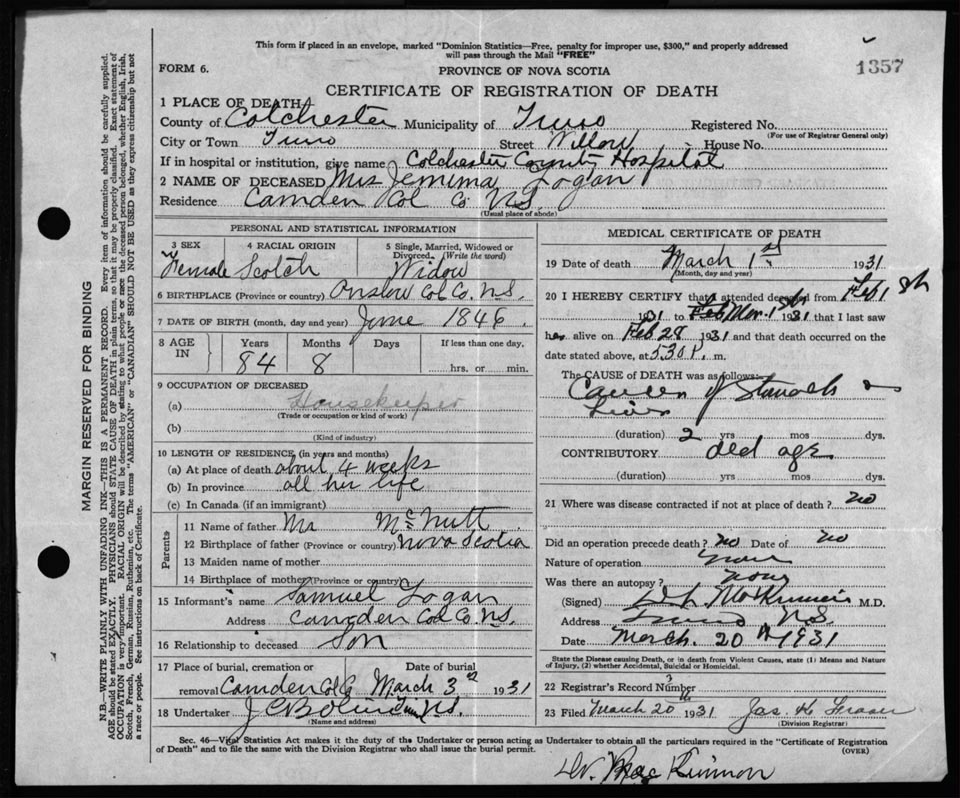 This form if placed in an envelope, marked "Dominion Statistics—Free, penalty for improper use, $300," and properly addressed
will pass through the Mail "FREE"
FORM 6.
PROVINCE OF NOVA SCOTIA
1357
CERTIFICATE OF REGISTRATION OF DEATH
1 PLACE OF DEATH
County of Colchester Municipality of Truro Registered No.
(For use of Registrar General only)
City or Town Truro Street Willow House No.
If in hospital or institution, give name Colchester County Hospital
2 NAME OF DECEASED Mrs Jemima Logan
Residence Camden Col Co N.S.
(Usual place of abode)
PERSONAL AND STATISTICAL INFORMATION
3 SEX 4 RACIAL ORIGIN 5 Single, Married, Widowed or
Divorced. (Write the word)
Female Scotch Widow
6 BIRTHPLACE (Province or country) Onslow Col Co. N.S.
7 DATE OF BIRTH (month, day and year) June 1846.
8 AGE IN Years Months Days If less than one day.
84 8 hrs. or min.
9 OCCUPATION OF DECEASED
(a) Housekeeper
(Trade or occupation or kind of work)
(b)
(Kind of industry)
10 LENGTH OF RESIDENCE (in years and months)
(a) At place of death about 4 weeks
(b) In province all her life
(c) In Canada (if an immigrant)
Parents
11 Name of father Mr McNutt
12 Birthplace of father (Province or country) Nova Scotia
13 Maiden name of mother
14 Birthplace of mother (Province or country)
15 Informant's name Samuel Logan
Address Camden Col Co N.S.
16 Relationship to deceased Son
17 Place of burial, cremation or Date of burial
removal Camden Col Co March 3rd 1931
18 Undertaker N.S.
(Name and address)
MEDICAL CERTIFICATE OF DEATH
19 Date of death March 1st 1931
(Month, day and year)
20 I HEREBY CERTIFY that I attended deceased from Feb 1
1931 to Mar. 1st 1931 that I last saw
her alive on Feb 28 1931 and that death occurred on the
date stated above, at 5.30 P. m.
The CAUSE of DEATH was as follows:
Cancer of Stomach
Liver
(duration) 2 yrs mos dys.
CONTRIBUTORY old age
(duration) yrs. mos. dys.
21 Where was disease contracted if not at place of death? no
Did an operation precede death? no Date of no
Nature of operation none
Was there an autopsy? none
(Signed) M.D.
Address Truro N.S.
Date March. 20th 1931
State the Disease causing Death, or in death from Violent Causes, state (1) Means and Nature
of Injury, (2) whether Accidental, Suicidal or Homicidal.
22 Registrar's Record Number 3
23 Filed March 20th 1931 Jas. H Fraser
(Division Registrar)
Sec. 46—Vital Statistics Act makes it the duty of the Undertaker or person acting as Undertaker to obtain all the particulars required in the "Certificate of Registration
of Death" and to file the same with the Division Registrar who shall issue the burial permit. (OVER)
Dr. MacKinnon
MARGIN RESERVED FOR BINDING
N.B.—WRITE PLAINLY WITH UNFADING INK—THIS IS A PERMANENT RECORD. Every item of information should be carefully supplied.
AGE should be stated EXACTLY. PHYSICIANS should STATE CAUSE OF DEATH in plain terms, so that it may be properly classified. Exact statement of
OCCUPATION is very important. RACIAL ORIGIN will be described by stating to what people or race the deceased person belonged, whether English, Irish,
Scotch, French, German, Russian, Ruthenian, etc. The terms "AMERICAN" or "CANADIAN" SHOULD NOT BE USED as they express citizenship but not
a race or people. See instructions on back of Certificate.